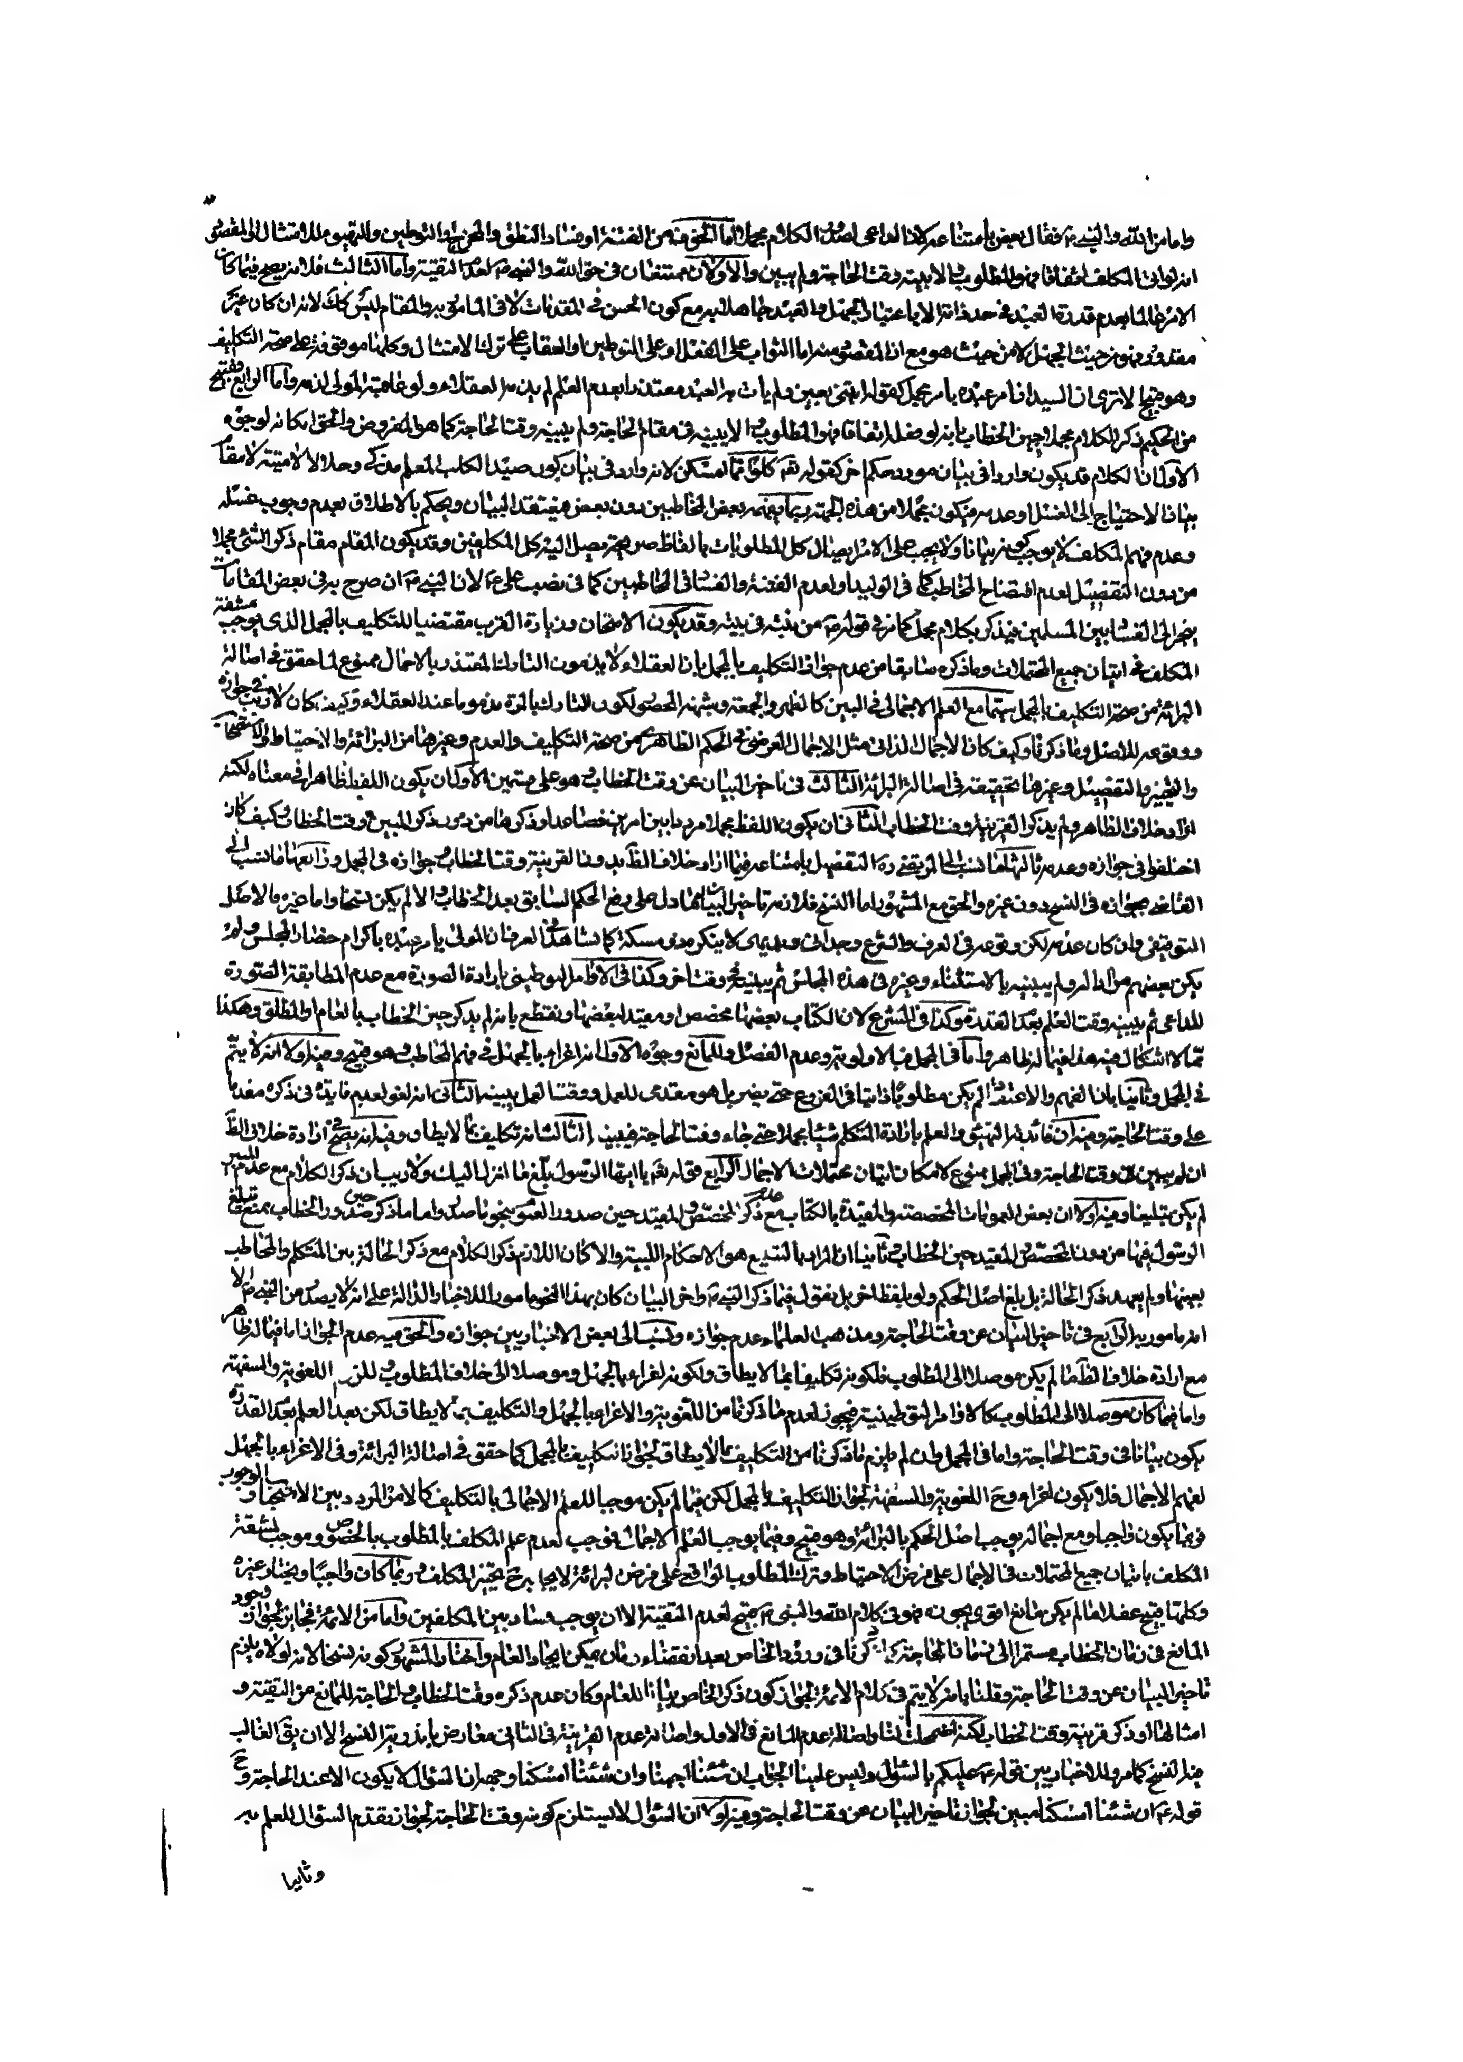 واما من الله والنبي ص فقال بعض بامتناعه لان الداعي لصدور الكلام مجملا اما الخوف من الفتنة او فساد النطق والعجز او التوطين والتهيؤ للامتثال الى المقصود
انه لو اتى المكلف اتفاقا فهو المطلوب والا يبينه وقت الحاجة ولم يبين والاولان ممتنعان في حق الله والنبي ص لعدم التقية واما الثالث فلانه يصح فيما كان
الامر ظالما بعدم قدرة العبد في حد ذاته الا باعتبار الجهل والعبد جاهلا به مع كون الحسن في المقدمات لا في المامور به والمقام ليس كك لانه ان كان غير
مقدور فهو من حيث الجهل لا من حيث هو مع ان المقصود منه اما الثواب على الفعل او على التوطين او العقاب على ترك الامتثال وكلها موقوفة على صحة التكليف
وهو قبيح الا ترى ان السيد اذا امر عبده بامر مجمل كقوله ايتني بعين ولم يات به العبد معتذرا بعدم العلم لم يذمه العقلاء ولو عاقبه المولى لذموه واما الرابع فقبيح
من الحكيم ذكر الكلام مجملا حين الخطاب بانه لو فعل اتفاقا فهو المطلوب والا يبينه في مقام الحاجة ولم يبينه وقت الحاجة كما هو المفروض والحق امكانه لوجوه
الاول ان الكلام قد يكون واردا في بيان مورد حكم اخر كقوله تعه كلوا مما امسكن لانه وارد في بيان كون صيد الكلب المعلم مذكى وحلالا لا ميتة لا مقام
بيان الاحتياج الى الغسل وعدمه فيكون مجملا من هذه الجهة ربما يفهمه بعض المخاطبين دون بعض فيعتقد البيان ويحكم بالاطلاق بعدم وجوب غسله
وعدم فهم المكلف لا يوجب كونه بيانا ولا يجب على الامر ايصال كل المطلوبات بالفاظ صريحة يصل اليه كل المكلفين وقد يكون المقام مقام ذكر الشئ مجملا
من دون التفصيل لعدم افتضاح المخاطب كما في الوليد او لعدم الفتنة والفساد في المخاطبين كما في نصب علي ع لان النبي ص ان صرح به في بعض المقامات
ينجر الى الفساد بين المسلمين فيذكر بكلام مجمل كما في قوله ص من بنته في بيته وقد يكون الامتحان وزيادة القرب مقتضيا للتكليف بالمجمل الذي يوجب مشقة
المكلف في اتيان جميع المحتملات وما ذكره سابقا من عدم جواز التكليف بالمجمل بان العقلاء لا يذمون التارك المعتذر بالاجمال ممنوع لما حقق في اصالة
البرائة من صحة التكليف بالمجمل سيما مع العلم الاجمالي في البين كالظهر والجمعة وشبهه المحصور لكون التارك بالمرة مذموما عند العقلاء وكيف كان لا ريب في جوازه
ووقوعه للاصل وما ذكرنا وكيف كان الاجمال الذاتي مثل الاجمال العرضي في الحكم الظاهري من صحة التكليف والعدم وغيرها من البرائة والاحتياط والاستصحاب
والتخيير والتفصيل وغيرها تحقيقه في اصالة البرائة الثالث في تاخير البيان عن وقت الخطاب وهو على قسمين الاول ان يكون اللفظ ظاهرا في معناه لكنه
اراد خلاف الظاهر ولم يذكر القرينة وقت الخطاب الثاني ان يكون اللفظ مجملا مرددا بين امرين فصاعدا وذكرها من دون ذكر المبين وقت الخطاب وكيف كان
اختلفوا في جوازه وعدمه ثالثها ما نسب الى المرتضى ره التفصيل بامتناعه فيما اراد خلاف الظ بدون القرينة وقت الخطاب وجوازه في المجمل ورابعها ما نسب الى
القاضي بجوازه في النسخ دون غيره والحق مع المشهور اما النسخ فلانه تاخير البيان مما دل على رفع الحكم السابق بعد الخطاب والا لم يكن نسخا واما غيره فالاصل
التوقيفي وان كان عدمه لكن وقوعه في العرف والشرع وجداني وبديهي لا ينكره ذو مسكة كما نشاهد في العرف ان المولى يامر عبده باكرام حضار المجلس ولم
يكن بعضهم مراد له ولم يبينه بالاستثناء وغيره في هذه المجلس ثم يبينه في وقت اخر وكذا في الاوامر التوطيني بارادة الصورة مع عدم المطابقة الصورة
للداعي ثم يبينه وقت العلم بعد القدرة وكذا في الشرع لان الكتاب بعضها مخصص او مقيد لبعضها ونقطع بانه لم يذكر حين الخطاب بالعام والمطلق وهكذا
مما لا اشكال فيه هذا فيما له ظاهر واما في المجمل فبالاولوية وعدم الفصل وللمانع وجوه الاول انه اغراء بالجهل في فهم المخاطب وهو قبيح وفيه اولا انه لا يتم
في المجمل وثانيا بان الفهم والاعتقاد لم يكن مطلوبا ذاتيا في الفروع حتى يضر بل هو مقدمي للعمل ووقت العمل يبينه الثاني انه لغو لعدم فائدة في ذكره مقدما
على وقت الحاجة وفيه ان فائدته التهيؤ والعلم بارادة المتكلم شيئا مجملا حتى جاء وقت الحاجة فيبينه الثالث انه تكليف بما لا يطاق وفيه انه يصح في ارادة خلاف الظ
ان لم يبين في وقت الحاجة وفي المجمل ممنوع لامكان اتيان محتملات الاجمال الرابع قوله تعه يا ايها الرسول بلغ ما انزل اليك ولا ريب ان ذكر الكلام مع عدم المبين
لم يكن تبليغا وفيه اولا ان بعض العمومات المخصصة والمقيدة بالكتاب مع عدم ذكر المخصص والمقيد حين صدور العموم بنحو ناصل واما ما ذكر حين صدور الخطاب يمنع تبليغ
الرسول فيها من دون المخصص والمقيد حين الخطاب وثانيا ان المراد بالتبليغ هو الاحكام اللبية والا كان اللازم ذكر الكلام مع ذكر الحالة بين المتكلم والمخاطب
بعينها ولم يعهد ذكر الحالة بل بلغ اصل الحكم ولو بلفظ اخر بل نقول فيما ذكر النبي ص واخر البيان كان بهذا النحو مامورا للاخبار الدالة على انه لا يصدر من النبي ص الا
انه مامور به الرابع في تاخير البيان عن وقت الحاجة ومذهب العلماء عدم جوازه ونسب الى بعض الاخباريين جوازه والحق فيه عدم الجواز اما فيما له ظاهر
مع ارادة خلاف الظ فما لم يكن موصلا الى المطلوب فلكونه تكليفا بما لا يطاق ولكونه اغراء بالجهل وموصلا الى خلاف المطلوب وللزوم اللغوية والسفهة
واما فيما كان موصلا الى المطلوب كالاوامر التوطينية فيجوز لعدم ما ذكرنا من اللغوية والاغراء بالجهل والتكليف بما لا يطاق لكن بعد العلم بعد القدرة
يكون بيانا في وقت الحاجة واما في المجمل وان لم يلزم ما ذكرنا من التكليف بما لا يطاق لجواز التكليف بالمجمل كما حقق في اصالة البرائة وفي الاغراء بالجهل
لفهم الاجمال فلا يكون اغراء وح اللغوية والسفهة لجواز التكليف بالمجمل لكن فيما لم يكن موجبا للعلم الاجمالي بالتكليف كالامر المردد بين الاستحباب والوجوب
فربما يكون واجبا ومع اجماله يوجب اصل الحكم بالبرائة وهو قبيح وفيما يوجب العلم الاجمالي فوجب لعدم علم المكلف بالمطلوب بالخصوص وموجب لمشقة
المكلف باتيان جميع المحتملات في الاجمال على فرض الاحتياط وترك المطلوب الواقعي على فرض البرائة لا يجابه ح تخير المكلف وربما كان واجبا ويختار غيره
وكلها قبيح عقلا ما لم يكن مانع اقوى بجوزه فهو في كلام الله والنبي ص قبيح لعدم التقية الا ان يوجب فساد بين المكلفين واما من الائمة فجايز لجواز وجود
المانع في زمان الخطاب مستمرا الى زمان الحاجة كما ذكرنا في ورود الخاص بعد انقضاء زمان يمكن ايجاد العام واختار المشهور كونه نسخا لانه لولاه يلزم
تاخير البيان عن وقت الحاجة وقلنا بانه لا يتم في كلام الائمة لجواز كون ذكر الخاص بيانا للعام وكان عدم ذكره وقت الخطاب والحاجة للمانع من التقية و
امثالها او ذكر قرينة وقت الخطاب لكنه اضمحلت لنا واصالة عدم المانع في الاول واصالة عدم القرينة في الثاني معارض بانه ريبة النسخ الا ان يق الغالب
فيه النسخ كما مر وللاخباريين قوله ع عليكم بالسؤال وليس علينا الجواب ان شئنا اجبنا وان شئنا امسكنا وجه ان السؤال لا يكون الا عند الحاجة وح
قوله ع ان شئنا امسكنا مبين لجواز تاخير البيان عن وقت الحاجة وفيه اولا ان السؤال لا يستلزم كونه وقت الحاجة لجواز تقدم السؤال للعلم به
وثانيا